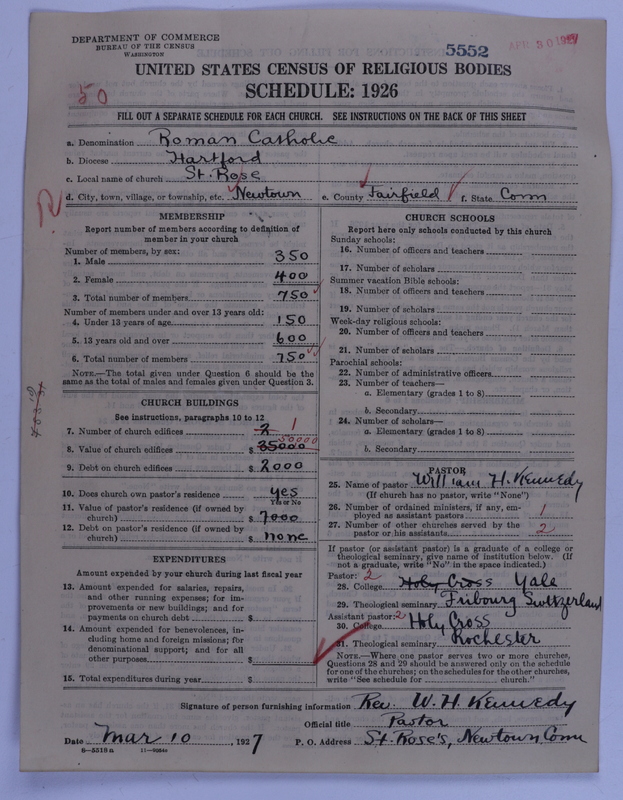 DEPARTMENT OF COMMERCE
BUREAU OF THE CENSUS
WASHINGTON
5552
APR 30 1927
UNITED STATES CENSUS OF RELIGIOUS BODIES
50
SCHEDULE: 1926
FILL OUT A SEPARATE SCHEDULE FOR EACH CHURCH. SEE INSTRUCTIONS ON THE BACK OF THIS SHEET
a. Denomination Roman Catholic
b. Diocese Hartford
c. Local name of church St. Rose
d. City, town, village, or township, etc. Newtown e. County Fairfield f. State Conn
MEMBERSHIP
Report number of members according to definition of
member in your church
Number of members, by sex:
1. Male 350
2. Female 400
3. Total number of members 750
Number of members under and over 13 years old:
4. Under 13 years of age 150
5. 13 years old and over 600
6. Total number of members 750
NOTE.—The total given under Question 6 should be the
same as the total of males and females given under Question 3.
CHURCH BUILDINGS
See instructions, paragraphs 10 to 12
7. Number of church edifices 2 1
8. Value of church edifices $ 35000 50000
9. Debt on church edifices $ 2000
10. Does church own pastor's residence yes
Yes or No
11. Value of pastor's residence (if owned by
church) $ 7000
12. Debt on pastor's residence (if owned by
church) $ none
EXPENDITURES
Amount expended by your church during last fiscal year
13. Amount expended for salaries, repairs,
and other running expenses; for im-
provements or new buildings; and for
payments on church debt $
14. Amount expended for benevolences, in-
cluding home and foreign missions; for
denominational support; and for all
other purposes $
15. Total expenditures during year $
CHURCH SCHOOLS
Report here only schools conducted by this church
Sunday schools:
16. Number of officers and teachers
17. Number of scholars
Summer vacation Bible schools:
18. Number of officers and teachers
19. Number of scholars
Week-day religious schools:
20. Number of officers and teachers
21. Number of scholars
Parochial schools:
22. Number of administrative officers
23. Number of teachers—
a. Elementary (grades 1 to 8)
b. Secondary
24. Number of scholars—
a. Elementary (grades 1 to 8)
b. Secondary
PASTOR
25. Name of pastor William H. Kennedy
(If church has no pastor, write "None")
26. Number of ordained ministers, if any, em-
ployed as assistant pastors 1
27. Number of other churches served by the
pastor or his assistants 2
If pastor (or assistant pastor) is a graduate of a college or
theological seminary, give name of institution below. (If
not a graduate, write "No" in the space indicated.)
Pastor: 2
28. College Holy Cross Yale
29. Theological seminary Fribourg Switzerland
Assistant pastor: 2
30. College Holy Cross
31. Theological seminary Rochester
NOTE.—Where one pastor serves two or more churches,
Questions 28 and 29 should be answered only on the schedule
for one of the churches; on the schedules for the other churches,
write "See schedule for church."
Signature of person furnishing information Rev. W. H. Kennedy
Official title Pastor
Date Mar 10, 1927 P. O. Address St. Rose's, Newtown, Conn
6—5318a